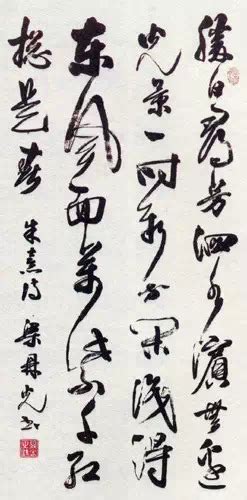 勝日尋芳泗水濱無邊
光景一時新等閑識得
東風面萬紫千紅
總是春 朱熹詩 梁鼎光書